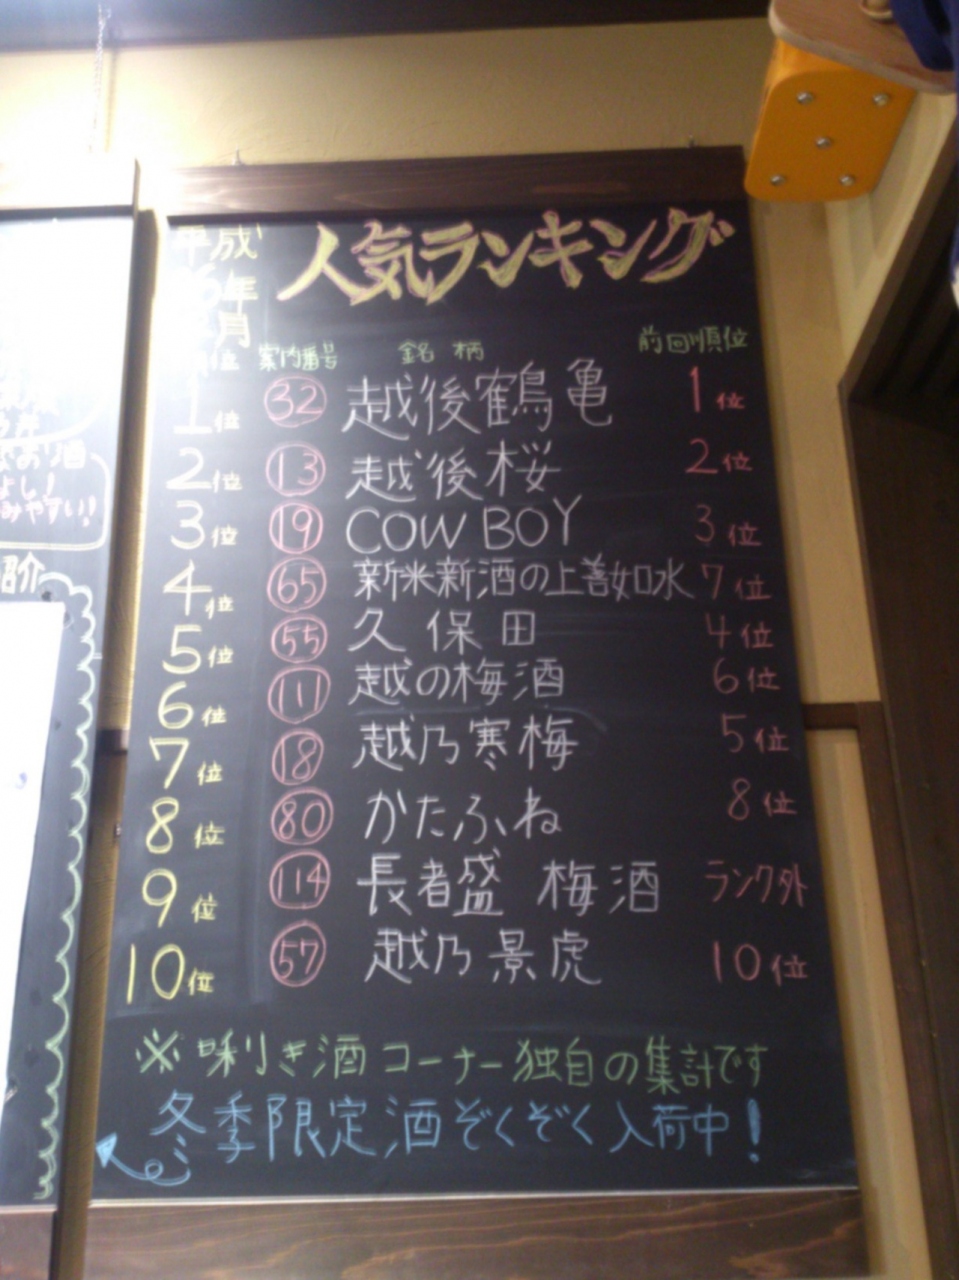 平成
年
月
人気ランキング
位 案内番号 銘柄 前回順位
1位 32 越後鶴亀 1位
2位 13 越後桜 2位
3位 19 COWBOY 3位
4位 65 新米新酒の上善如水 7位
5位 55 久保田 4位
6位 111 越の梅酒 6位
7位 18 越乃寒梅 5位
8位 80 かたふね 8位
9位 114 長者盛 梅酒 ランク外
10位 57 越乃景虎 10位
※唎き酒コーナー独自の集計です
冬季限定酒ぞくぞく入荷中!
酒
よし!
みやすい!
紹介